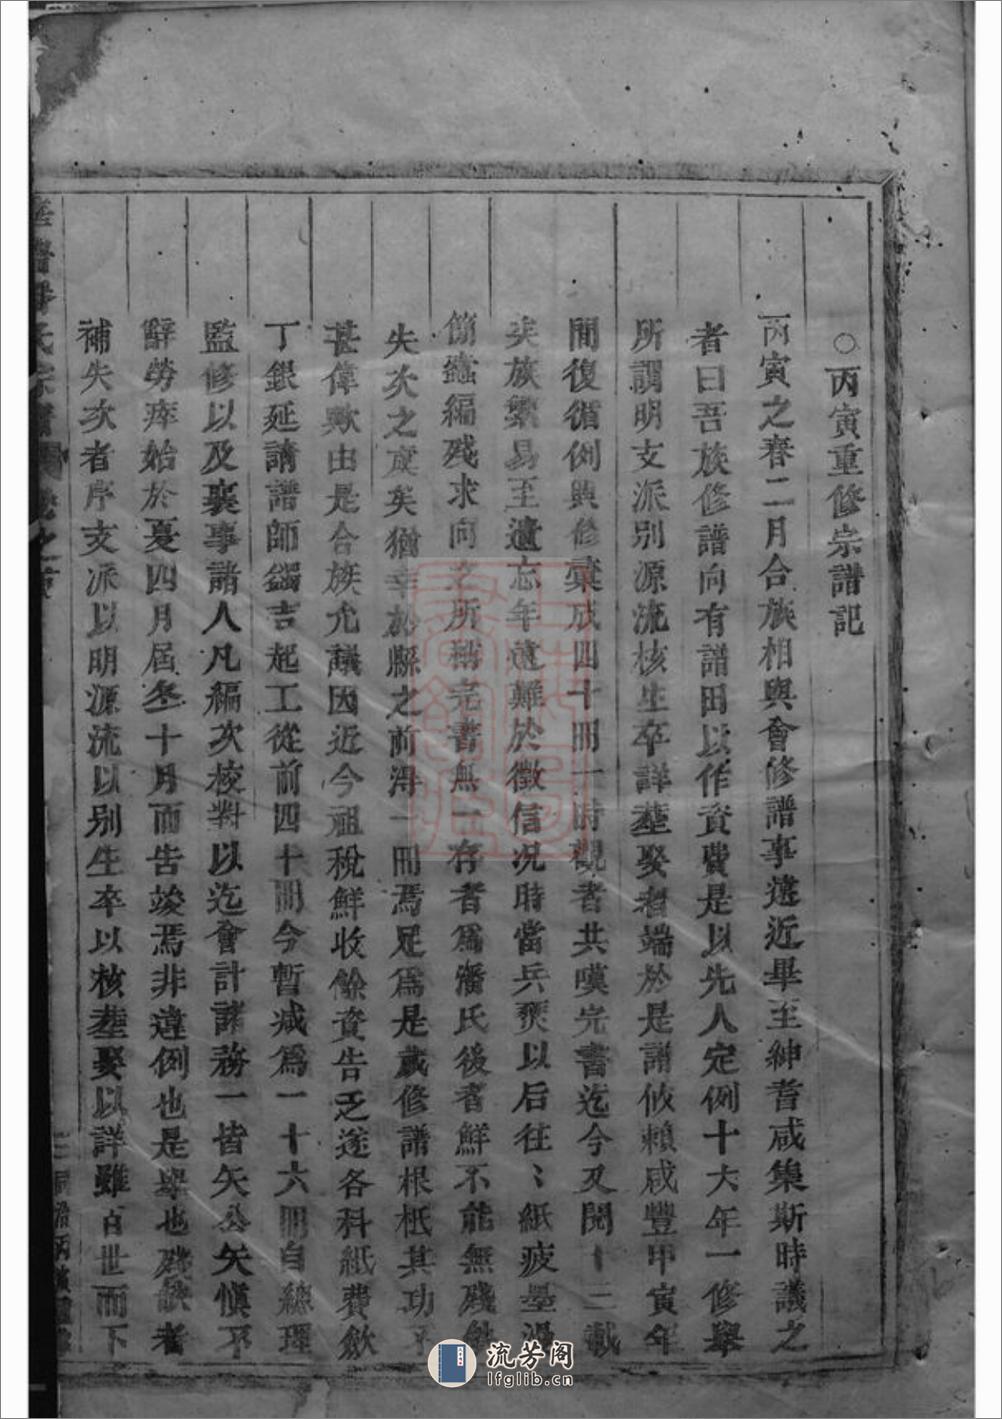 ○丙寅重修宗譜記
丙寅之春二月合族相與會修譜事遠近畢至紳耆咸集斯時議之
者曰吾族修譜向有譜田以作資費是以先人定例十大年一修舉
所謂明支派别源流核生卒詳塟娶者端於是譜攸賴咸豐甲寅年
間復循例興修稾成四十冊一時觀者共嘆完書迄今又閱十三載
矣族繁易至遺忘年遠難於徵信况時當兵燹以后往〻紙疲墨
簡蠧編殘求向之所稱完書無一存者爲潘氏後者鮮不能無殘缺
失次之㦯矣猶幸於縣之前得一冊焉足爲是歲修譜根柢其功不
甚偉歟由是合族允議因近今祖稅鮮收餘資告乏遂各科紙費歛
丁銀延請譜師蠲吉起工從前四十冊今暫減爲一十六冊自總理
監修以及襄事諸人凡編次校對以迄會計諸務一皆矢公矢愼不
辭勞瘁始於夏四月屆冬十月而告竣焉非違例也是舉也殘缺者
補失次者序支派以明源流以别生卒以核塟娶以詳雖百世而下
氏宗譜
流芳阁
lfglib.cn